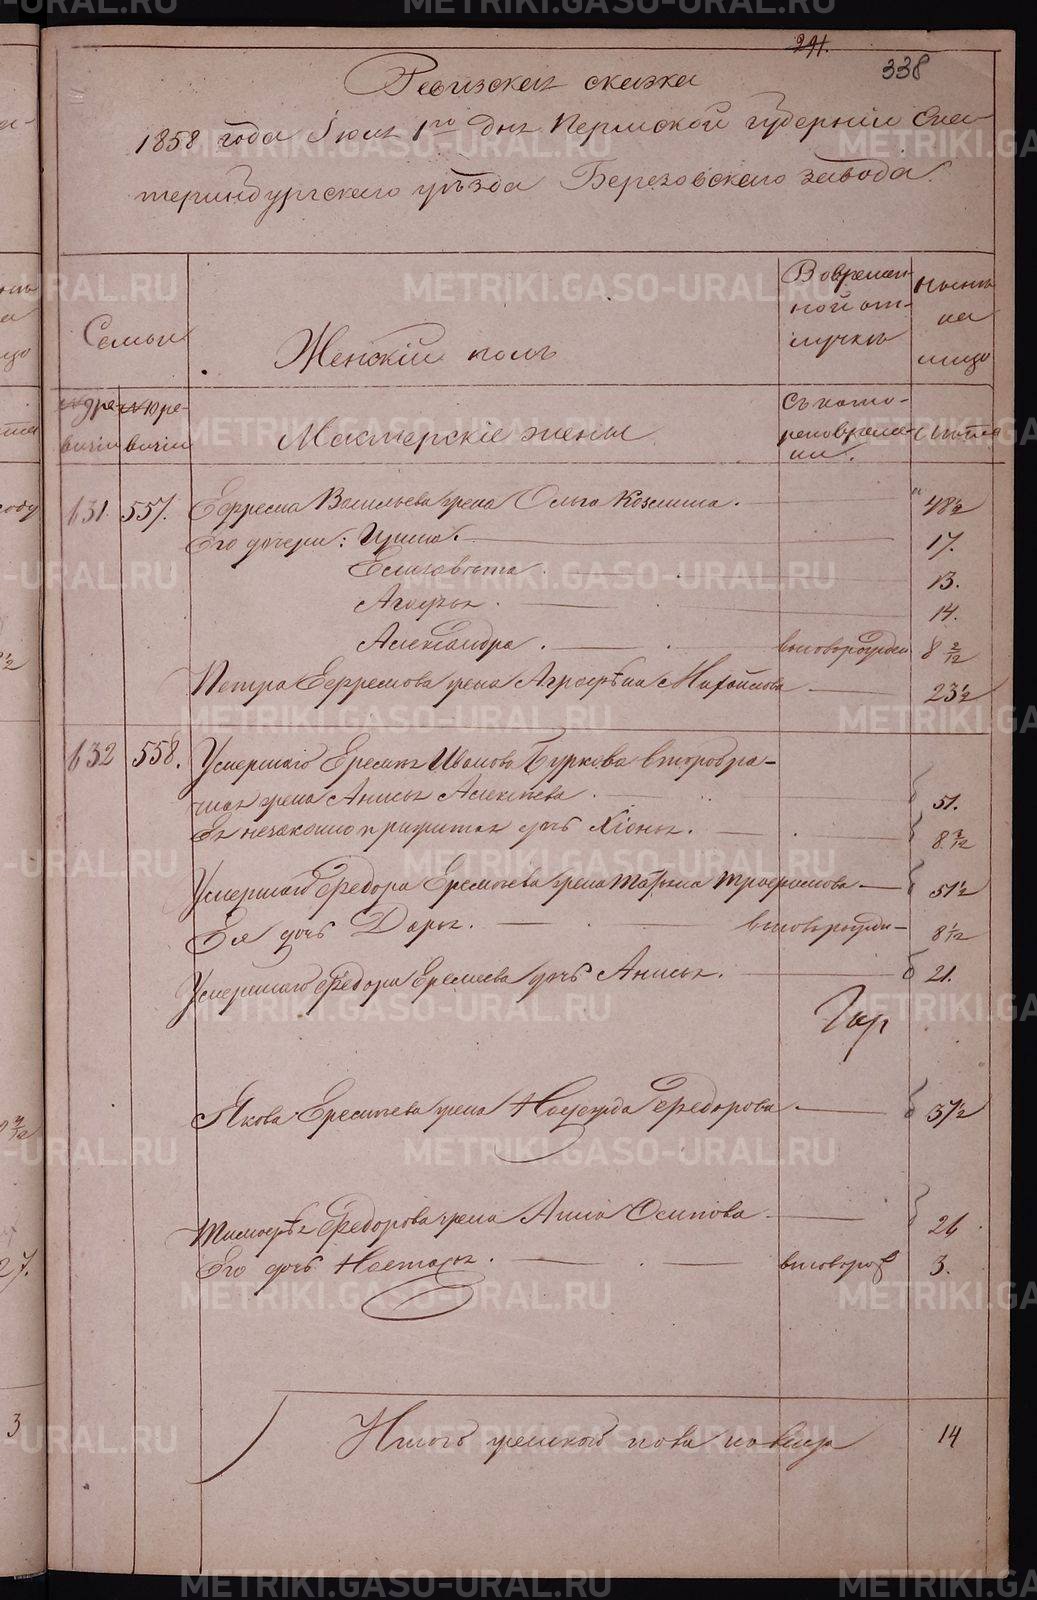 291.
338
Ревизская сказка
1858 года Іюля 1го дня Пермской губерніи Ека
теринбургского уѣзда Березовского завода.
Семьи
Женскій полъ
Во времен-
ной от-
лучкѣ
Нынѣ
на
лицо
Мастерскіе жены
Съ кото-
раго време-
ни.
Лѣта
131. 557. Ефрема Васильева жена Ольга Козмина. 48½
Его дочери: Ирина. 17.
Елизавѣта 13.
Агафья. 14.
Александра. вновьрожден 8 2/12
Петра Ефремова жена Аграфѣна Михайлова 23½
132 558. Умершаго Еремѣя Иванова Буркова второбра-
чная жена Анисья Алексѣева. 51.
Ея незаконно прижитая дочь Хіонья. 8
Умершаго Федора Еремѣева жена Татьяна Трофимова 51½
Ея дочь Дарья. 8½
Умершаго Федора Еремѣева дочь Анисья. 21.
Якова Еремѣева жена Надежда Федорова 37½
Тимофѣя Федорова жена Анна Осипова 26
Его дочь Настасья. вновьрож 3.
Итого женского пола на лицо 14
METRIKI.GASO-URAL.RU